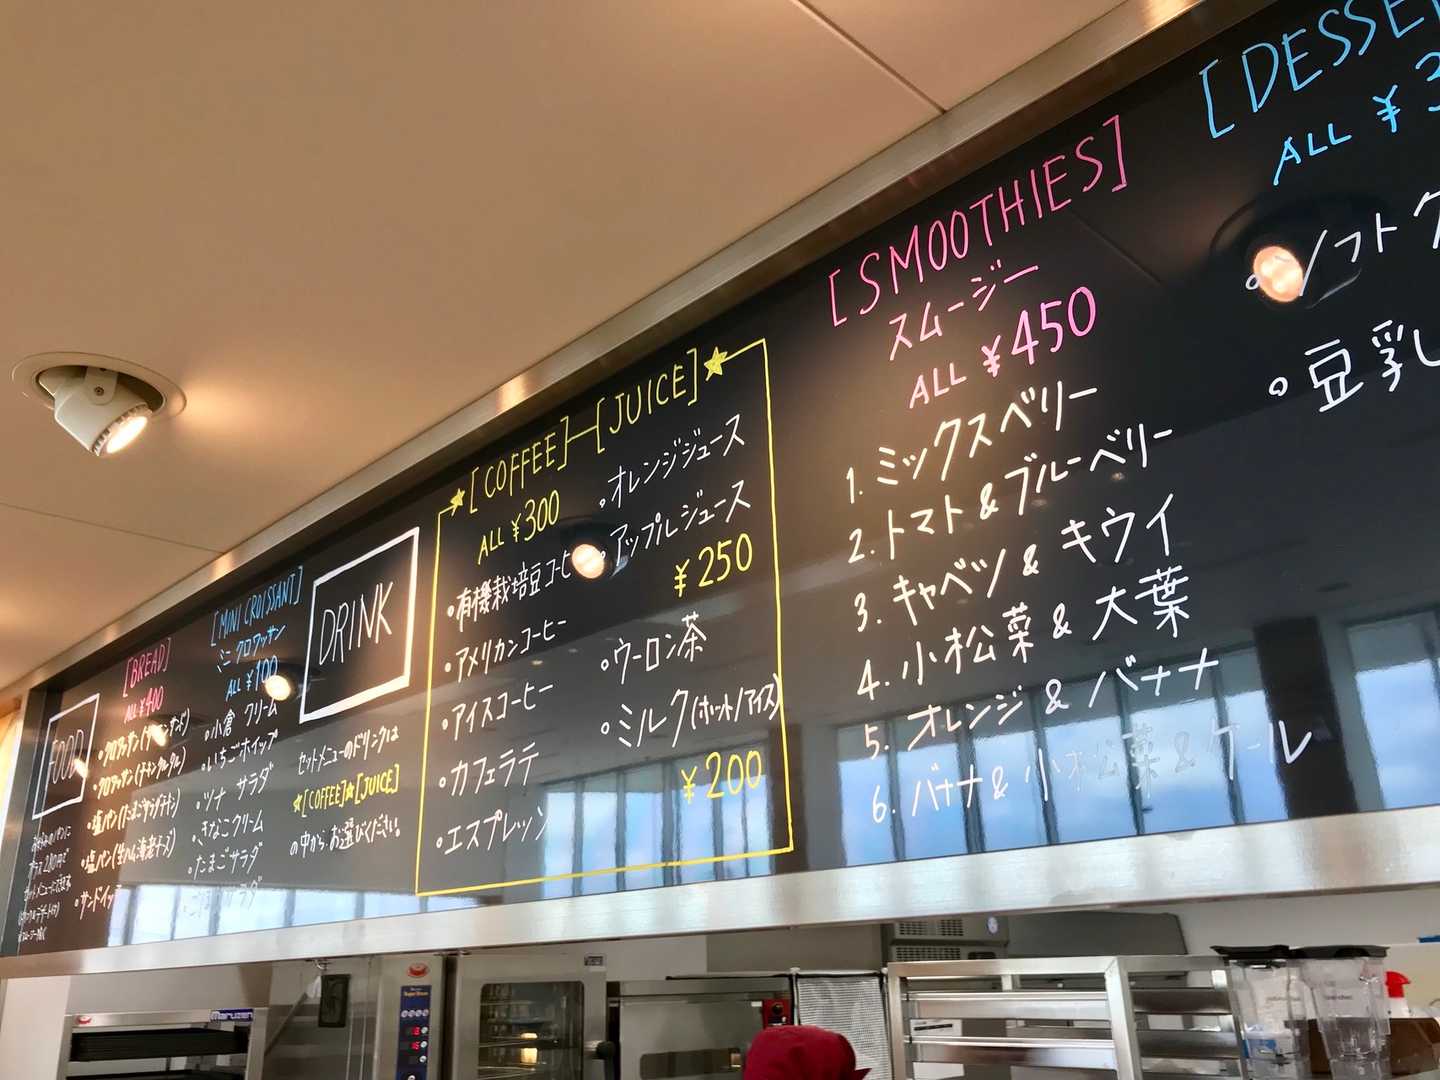 FOOD
[BREAD]
ALL ¥400
サンドイッチ
[MINI CROISSANT]
ミニクロワッサン
ALL ¥100
・小倉 クリーム
・いちごホイップ
・ツナ サラダ
・きなこクリーム
・たまごサラダ
DRINK
セットメニューのドリンクは
★[COFFEE]★[JUICE]
の中から、お選びください。
★[COFFEE]—[JUICE]★
ALL ¥300
・有機栽培豆コーヒ
・アメリカンコーヒー
・アイスコーヒー
・カフェラテ
・エスプレッソ
・オレンジジュース
・アップルジュース
¥250
・ウーロン茶
・ミルク(ホット/アイス)
¥200
[SMOOTHIES]
スムージー
ALL ¥450
1. ミックスベリー
2. トマト & ブルーベリー
3. キャベツ & キウイ
4. 小松菜 & 大葉
5. オレンジ & バナナ
6. バナナ & 小松菜 & ケール
[DESSE
ALL ¥3
・ソフトク
・豆乳
Maruzen